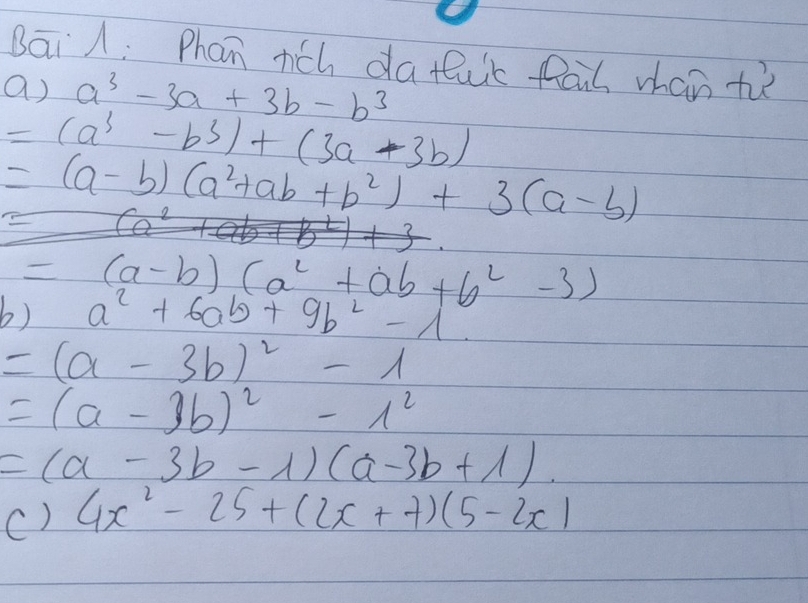 Bài 1: Phân tích đa thức thành nhân tử
a) a³ - 3a + 3b - b³
= (a³ - b³) + (3a - 3b)
= (a - b) (a² + ab + b²) + 3(a - b)
= (a² + ab + b²) + 3.
= (a - b) (a² + ab + b² - 3)
b) a² + 6ab + 9b² - 1.
= (a - 3b)² - 1
= (a - 3b)² - 1²
= (a - 3b - 1) (a - 3b + 1).
c) 4x² - 25 + (2x + 7)(5 - 2x)